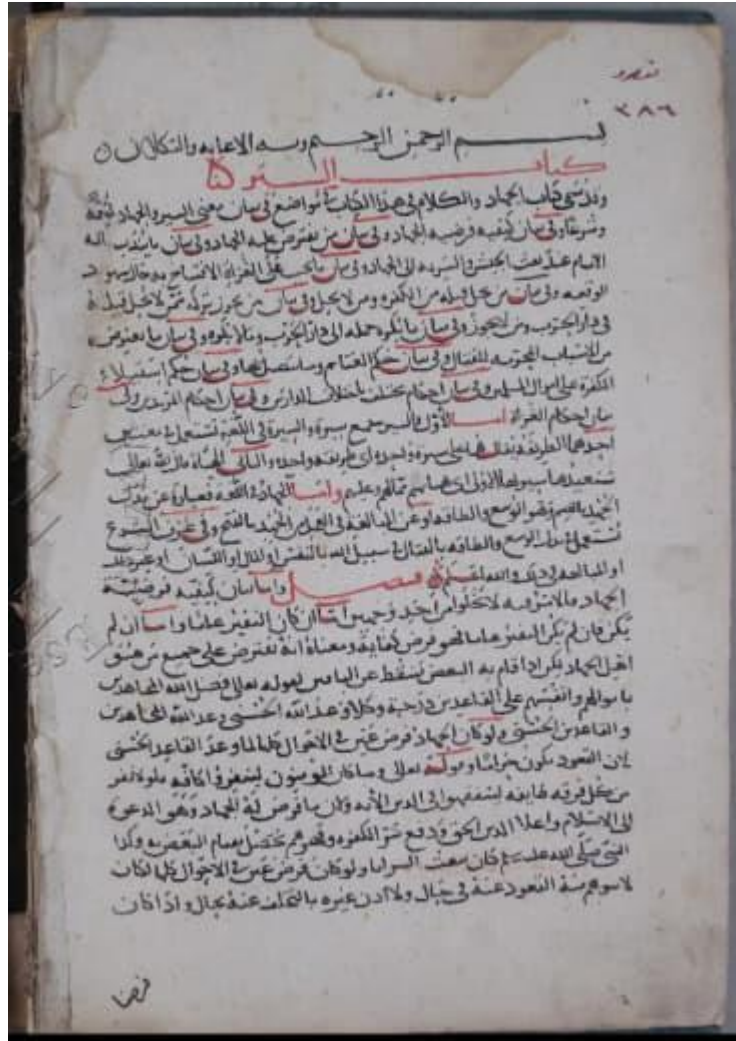 ٣٨٦
بسم الرحمن الرحيم وبه الاعانه والتكلان
كتاب السير
وقد سمى كتاب الجهاد والكلام في هذا الكتاب في مواضع في بيان معنى السير والجهاد لغة
وشرعا وفي بيان كيفيه فرضيه الجهاد وفي بيان من يفترض عليه الجهاد وفي بيان ما يندب اليه
الامام عند بعث الجيش او السريه الى الجهاد وفي بيان ما يجب على الغزاة الافتتاح به حال شهود
الوقعه وفي بيان من يحل قتله من الكفره ومن لا يحل وفي بيان من يجوز تركه ممن لا يحل قتله
في دار الحرب ومن لا يجوز وفي بيان ما يكره حمله الى دار الحرب وما لا يكره وفي بيان ما يعترض
من الاسباب المحرمه للقتال وفي بيان حكم الغنائم وما يتصل بها وفي بيان حكم استيلاء
الكفرة على اموال المسلمين وفي بيان احكام تختلف باختلاف الدارين وفي بيان احكام المرتدين وفي
بيان احكام الغزاة اما الاول فالسير جمع سيرة والسيرة في اللغة تستعمل في معنيين
احدهما الطريقه يقال هما على سيرة واحدة اى طريقه واحده والثاني الهيأة قال الله تعالى
سنعيدها سيرتها الاولى اى هيأتها واما الجهاد في اللغة فعبارة عن بذل
الجهد بالضم وهو الوسع والطاقه او عن المبالغه في العمل من الجهد بالفتح وفي عرف الشرع
يستعمل في بذل الوسع والطاقه بالقتال في سبيل الله بالنفس او المال او اللسان او غير ذلك
او المبالغه في ذلك والله اعلم فصل واما بيان كيفيه فرضيته
الجهاد فالامر فيه لا يخلو من احد وجهين اما ان كان النفير عاما واما ان لم
يكن فان لم يكن النفير عاما فهو فرض كفاية ومعناه انه يفترض على جميع من هو من
اهل الجهاد لكن اذا قام به البعض يسقط عن الباقين لقوله تعالى فضل الله المجاهدين
باموالهم وانفسهم على القاعدين درجة وكلا وعد الله الحسنى وعد الله المجاهدين
والقاعدين الحسنى ولو كان الجهاد فرض عين في الاحوال كلها لما وعد القاعد الحسنى
لان القعود يكون حراما وقوله تعالى وما كان المؤمنون لينفروا كافه فلولا نفر
من كل فرقه طايفه ليتفقهوا في الدين الأيه ولان ما فرض له الجهاد وهو الدعوة
الى الاسلام واعلا الدين الحق ودفع شر الكفره وقهرهم يحصل بقيام البعض به وكذا
النبي صلى الله عليه كان يبعث السرايا ولو كان فرض عين في الاحوال كلها لكان
لا يتوهم منه القعود عنه في حال ولا اذن غيره بالتخلف عنه بحال واذا كان
فرضا